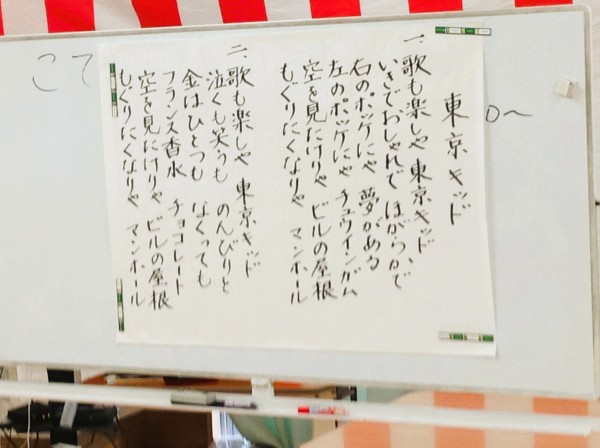 東京キッド
一、歌も楽しや 東京キッド
いきでおしゃれで ほがらかで
右のポッケにゃ 夢がある
左のポッケにゃ チュウインガム
空を見たけりゃ ビルの屋根
もぐりたくなりゃ マンホール
二、歌も楽しや 東京キッド
泣くも笑うも のんびりと
金はひとつも なくっても
フランス香水 チョコレート
空を見たけりゃ ビルの屋根
もぐりたくなりゃ マンホール
こて
0〜